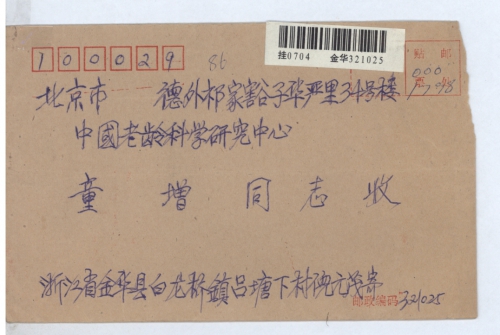 挂0704 金华321025
100029
86
贴 邮
000
票
北京市 德外祁家豁子华严里34号楼
中國老龄科学研究中心
童增同志收
浙江省金华县白龙桥鎮吕塘下村 元茂寄
邮政编码 321025